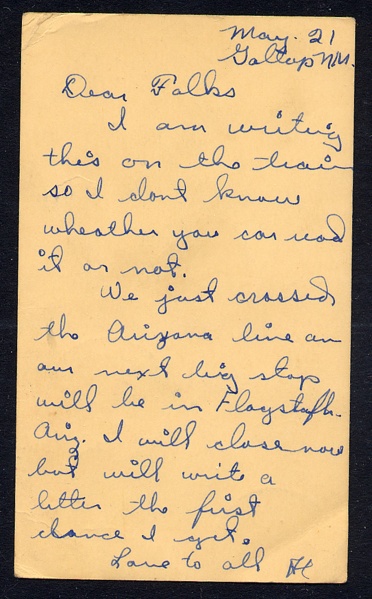 May. 21
Gallup N.M.
Dear Folks
I am writing
this on the train
so I dont know
wheather you can read
it or not.
We just crossed
the Arizona line an
our next big stop
will be in Flagstaff.
Ariz. I will close now
but will write a
letter the first
chance I get.
Love to all